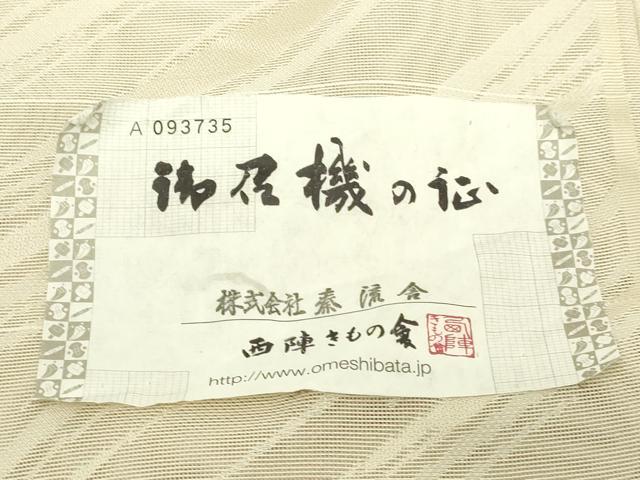 A 093735
御召機の証
株式会社 秦流舎
西陣きもの會
西陣きもの會
http://www.omeshibata.jp